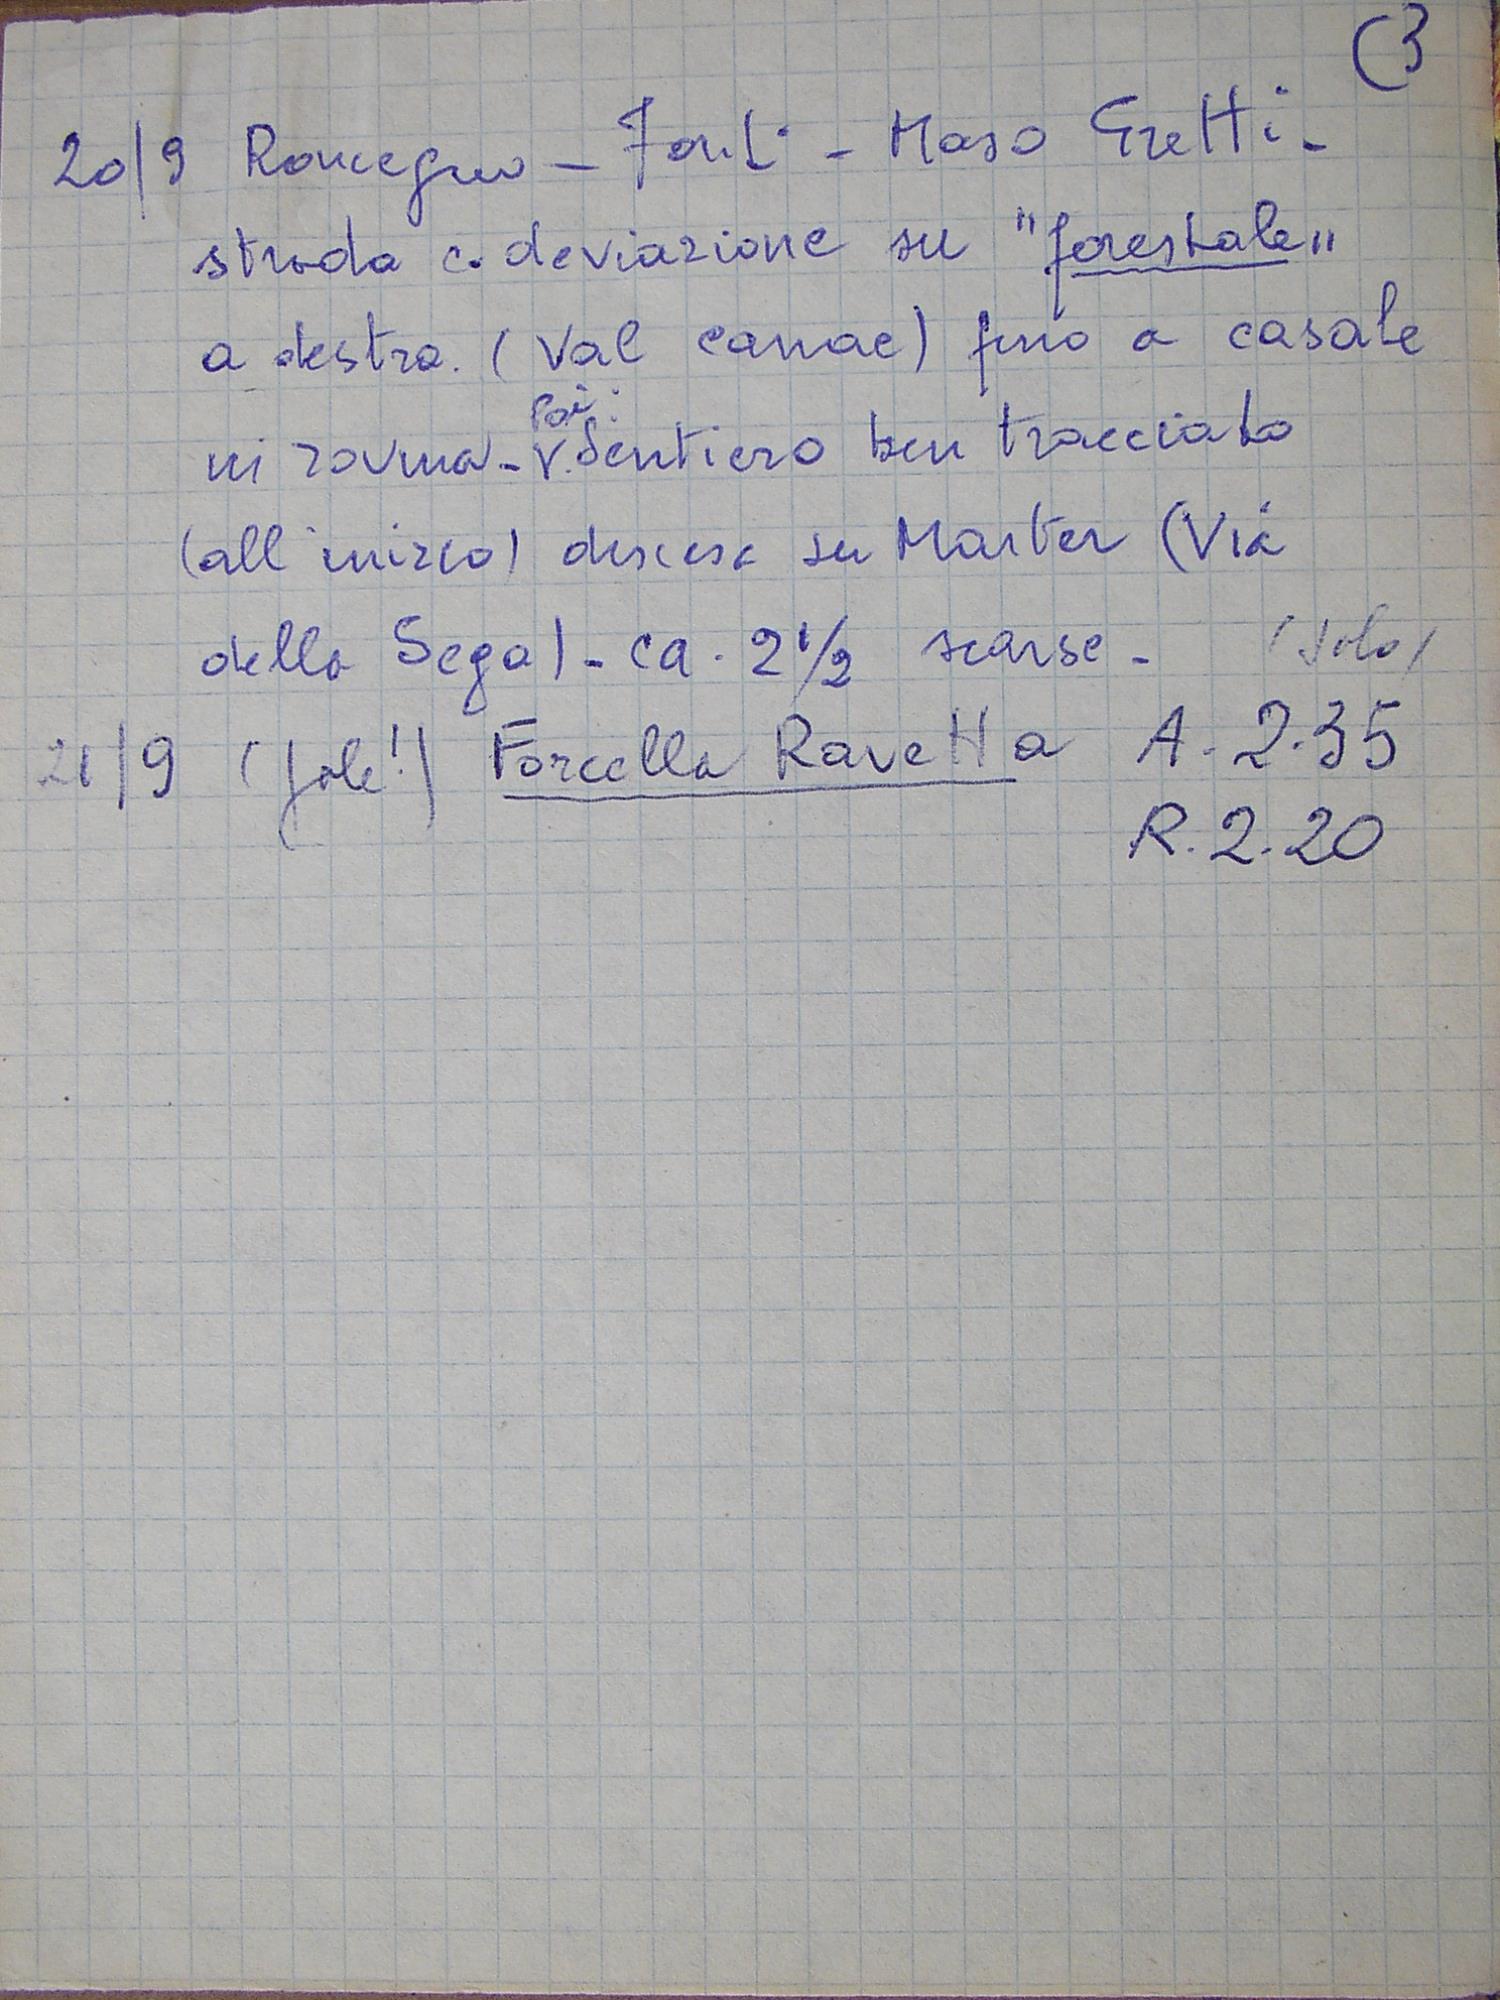 (3
20/9 Roncegno - Fonti - Maso Gretti -
strada c. deviazione su "forestale"
a destra. (Val canae) fino a casale
poi:
in rovina - v. Sentiero ben tracciato
(all'inizio) discesa su Marter (Via
della Sega) - ca. 2 1/2 scarse - (solo)
21/9 (sole!) Forcella Ravetta A. 2.35
R. 2.20